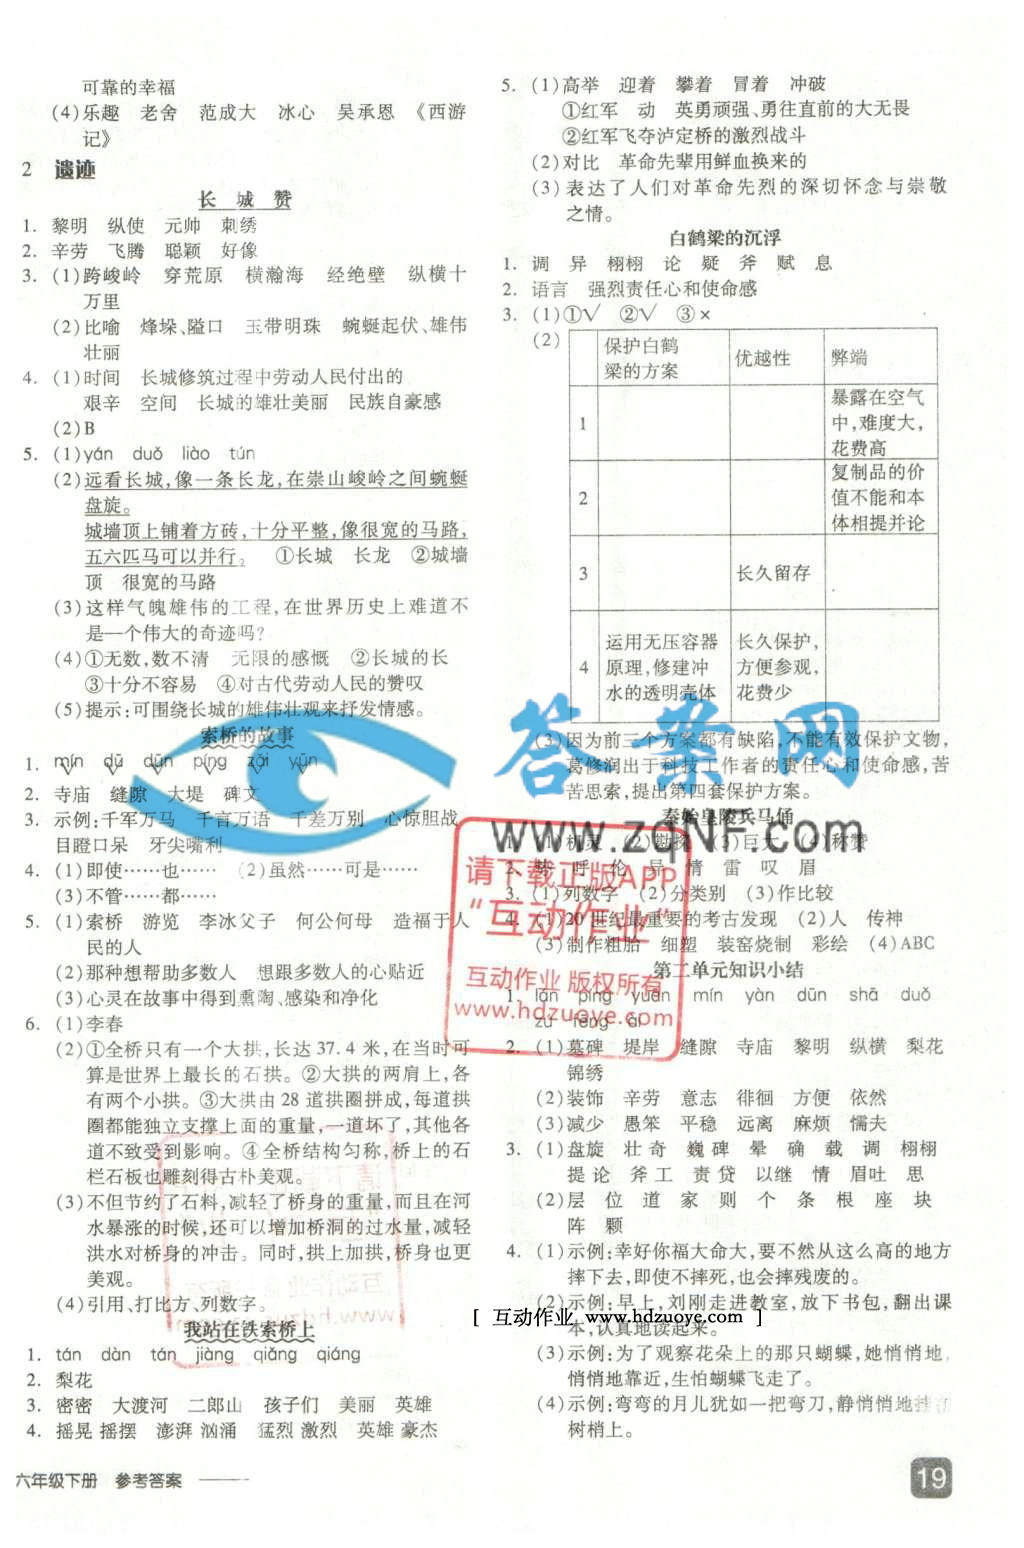 可靠的幸福
(4)乐趣 老舍 范成大 冰心 吴承恩 《西游
记》
2 遗迹
长城赞
1. 黎明 纵使 元帅 刺绣
2. 辛劳 飞腾 聪颖 好像
3. (1)跨峻岭 穿荒原 横瀚海 经绝壁 纵横十
万里
(2)比喻 烽垛、隘口 玉带明珠 蜿蜒起伏、雄伟
壮丽
4. (1)时间 长城修筑过程中劳动人民付出的
艰辛 空间 长城的雄壮美丽 民族自豪感
(2)B
5. (1)yán duǒ liào tún
(2)远看长城,像一条长龙,在崇山峻岭之间蜿蜒
盘旋。
城墙顶上铺着方砖,十分平整,像很宽的马路,
五六匹马可以并行。 ①长城 长龙 ②城墙
顶 很宽的马路
(3)这样气魄雄伟的工程,在世界历史上难道不
是一个伟大的奇迹吗?
(4)①无数,数不清 无限的感慨 ②长城的长
③十分不容易 ④对古代劳动人民的赞叹
(5)提示:可围绕长城的雄伟壮观来抒发情感。
索桥的故事
1. mín dū dūn píng zāi yūn
2. 寺庙 缝隙 大堤 碑文
3. 示例:千军万马 千言万语 千差万别 心惊胆战
目瞪口呆 牙尖嘴利
4. (1)即使……也…… (2)虽然……可是……
(3)不管……都……
5. (1)索桥 游览 李冰父子 何公何母 造福于人
民的人
(2)那种想帮助多数人 想跟多数人的心贴近
(3)心灵在故事中得到熏陶、感染和净化
6. (1)李春
(2)①全桥只有一个大拱,长达37.4米,在当时可
算是世界上最长的石拱。②大拱的两肩上,各
有两个小拱。③大拱由28道拱圈拼成,每道拱
圈都能独立支撑上面的重量,一道坏了,其他各
道不致受到影响。④全桥结构匀称,桥上的石
栏石板也雕刻得古朴美观。
(3)不但节约了石料,减轻了桥身的重量,而且在河
水暴涨的时候,还可以增加桥洞的过水量,减轻
洪水对桥身的冲击。同时,拱上加拱,桥身也更
美观。
(4)引用、打比方、列数字。
我站在铁索桥上
1. tán dàn tán jiàng qiǎng qiáng
2. 梨花
3. 密密 大渡河 二郎山 孩子们 美丽 英雄
4. 摇晃 摇摆 澎湃 汹涌 猛烈 激烈 英雄 豪杰
六年级下册 参考答案
5. (1)高举 迎着 攀着 冒着 冲破
①红军 动 英勇顽强、勇往直前的大无畏
②红军飞夺泸定桥的激烈战斗
(2)对比 革命先辈用鲜血换来的
(3)表达了人们对革命先烈的深切怀念与崇敬
之情。
白鹤梁的沉浮
1. 调 异 栩栩 论 疑 斧 赋 息
2. 语言 强烈责任心和使命感
3. (1)①√ ②√ ③×
(2)
保护白鹤梁的方案 优越性 弊端
1 暴露在空气中,难度大,花费高
2 复制品的价值不能和本体相提并论
3 长久留存
4 运用无压容器原理,修建冲水的透明壳体 长久保护,方便参观,花费少
(3)因为前三个方案都有缺陷,不能有效保护文物,
葛修润出于科技工作者的责任心和使命感,苦
苦思索,提出第四套保护方案。
秦始皇陵兵马俑
1. (1)机灵 (2)勘探 (3)巨大 (4)称赞
2. 呼 伦 异 情 雷 叹 眉
3. (1)列数字 (2)分类别 (3)作比较
4. (1)20世纪最重要的考古发现 (2)人 传神
(3)制作粗胎 细塑 装窑烧制 彩绘 (4)ABC
第二单元知识小结
1. lán píng yuán mín yàn dūn shā duǒ
zú réng āi
2. (1)墓碑 堤岸 缝隙 寺庙 黎明 纵横 梨花
锦绣
(2)装饰 辛劳 意志 徘徊 方便 依然
(3)减少 愚笨 平稳 远离 麻烦 懦夫
3. (1)盘旋 壮奇 巍碑 晕 确 载 调 栩栩
提论 斧工 责贷 以继 情 眉吐 思
(2)层 位 道 家 则 个 条 根 座 块
阵 颗
4. (1)示例:幸好你福大命大,要不然从这么高的地方
摔下去,即使不摔死,也会摔残废的。
(2)示例:早上,刘刚走进教室,放下书包,翻出课
本,认真地读起来。
(3)示例:为了观察花朵上的那只蝴蝶,她悄悄地,
悄悄地靠近,生怕蝴蝶飞走了。
(4)示例:弯弯的月儿犹如一把弯刀,静悄悄地挂在
树梢上。
19
答案网
www.zqNF.com
请下载正版APP
“互动作业”
互动作业 版权所有
www.hdzuoye.com
[ 互动作业 www.hdzuoye.com ]